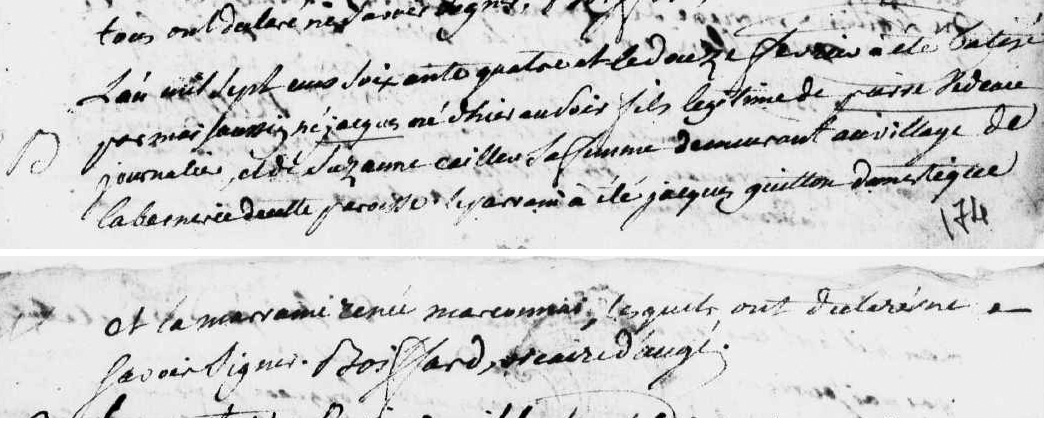 tous ont déclaré ne savoir signer.
L'an mil sept cens soixante quatre et le douze fevrier a eté batisé
par moi soussigné jacques né d'hier au soir fils legitime de pierre
journalier, et de Suzanne cailleu sa femme demeurant au village de
la bernerie de cette paroisse. le parrain à été jacques guitton domestique
174
et la marraine renée marconnai, lesquels ont declaré ne
savoir signer. Boissard, vicaire d'augé.